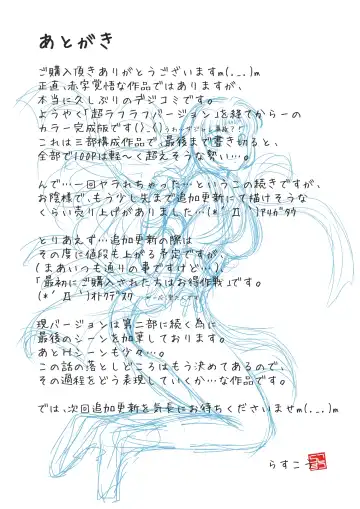 あとがき
ご購入頂きありがとうございますm(._.)m
正直、赤字覚悟な作品ではありますが、
本当に久しぶりのデジコミです。
ようやく「超ラフラフバージョン」を経てからーの
カラー完成版です()_()
これは三部構成作品で、最後まで書き切ると、
全部で100Pは軽〜く超えそうな勢い…。
んで…一回ヤラれちゃった…というこの続きですが、
お陰様で、もう少し先まで追加更新にて描けそうな
くらい売り上がりありました…(*´Д｀)ｱﾘｶﾞﾀｳ
とりあえず…追加更新の際は
その度に値段も上がる予定ですが、
(まあいつも通りの事ですけど…)、
「最初にご購入されたちはお得作戦」です。
(*´Д｀)ｵﾄｸﾃﾞｽｸﾞ
現バージョンは第二部に続く為に
最後のシーンを加筆しております。
あとHシーンも少々…。
この話の落としどころはもう決めてあるので、
その過程をどう表現していくか…な作品です。
では、次回追加更新を気長にお待ちくださいませm(._.)m
らすこー